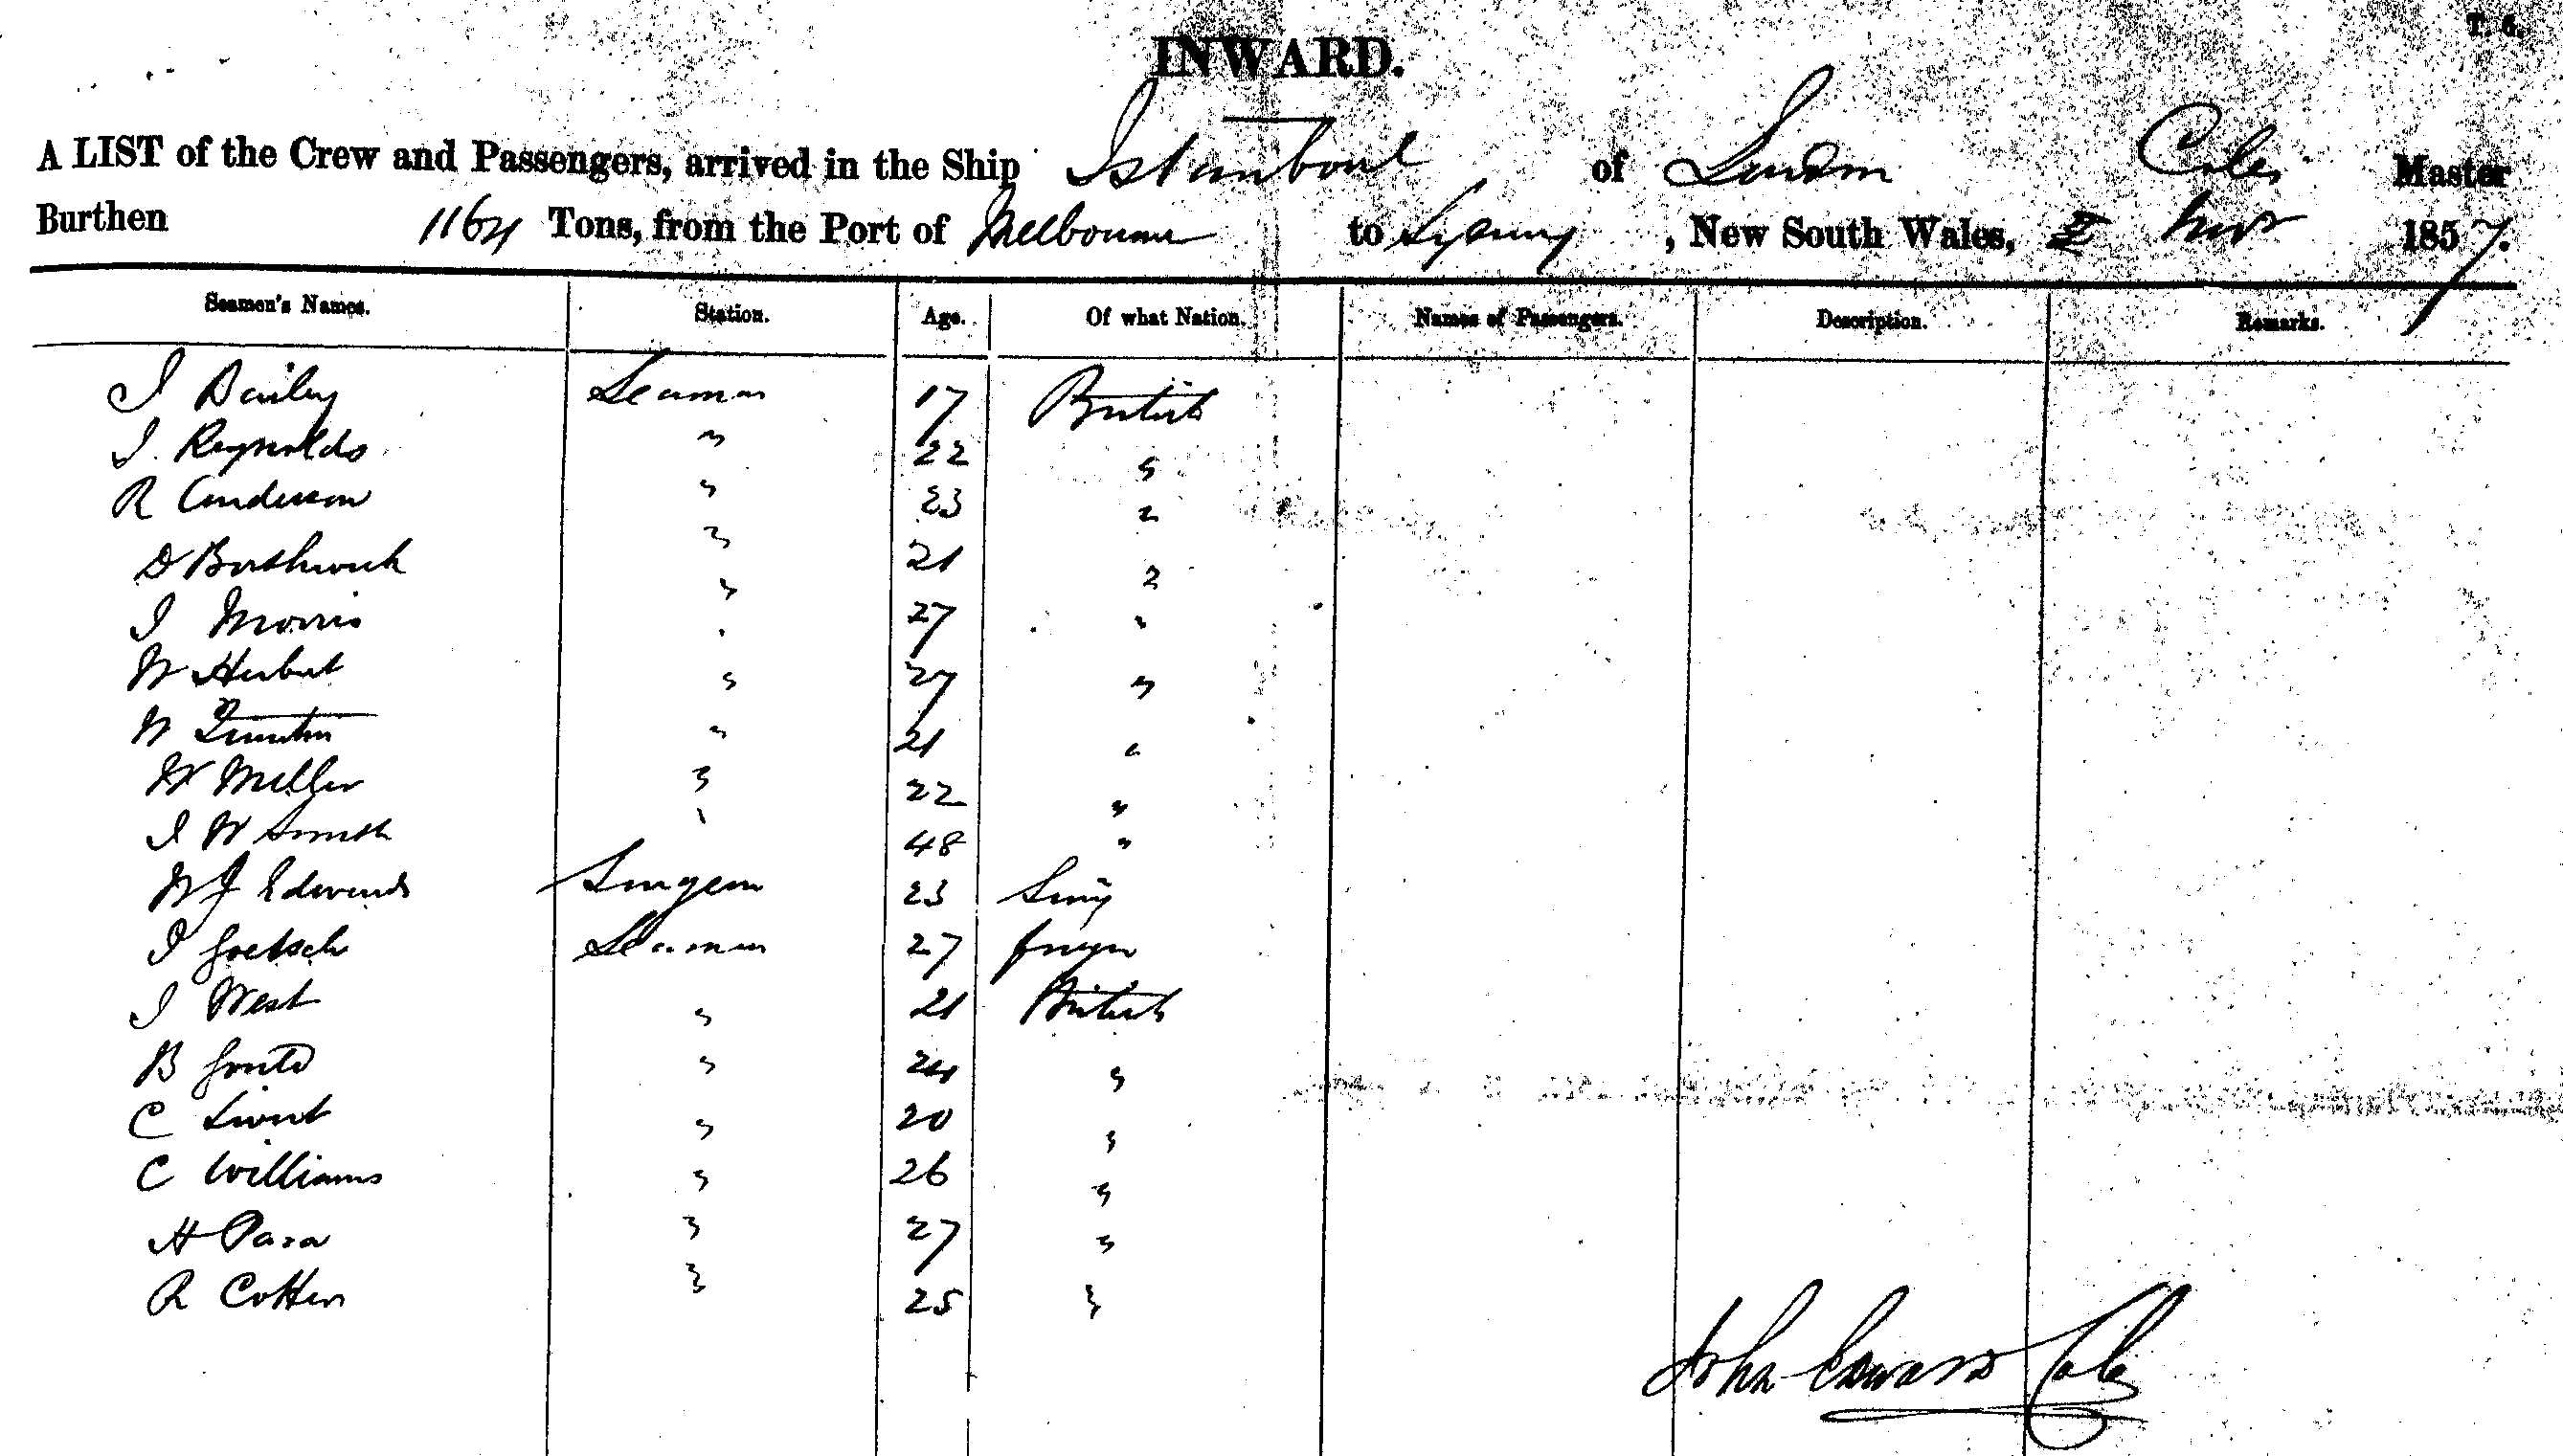 T. 6.
INWARD.
A LIST of the Crew and Passengers, arrived in the Ship Istamboul of London Coles Master
Burthen 1164 Tons, from the Port of Melbourne to Sydney, New South Wales, 2 Nov 1857.
Seamen's Names. Station. Age. Of what Nation. Names of Passengers. Description. Remarks.
J Bailey Seaman 17 British
J. Reynolds " 22 "
R Anderson " 23 "
D Borthwick " 21 "
J Morris " 27 "
W Herbert " 27 "
W 21 "
W Miller " 22 "
J W Smith " 48 "
W J Edwards Surgeon 23
J Goetsch Seaman 27
J West " 21 British
B " 24 "
C " 20 "
C Williams " 26 "
H Para " 27 "
R Cotten " 25 "
John Edward Coles